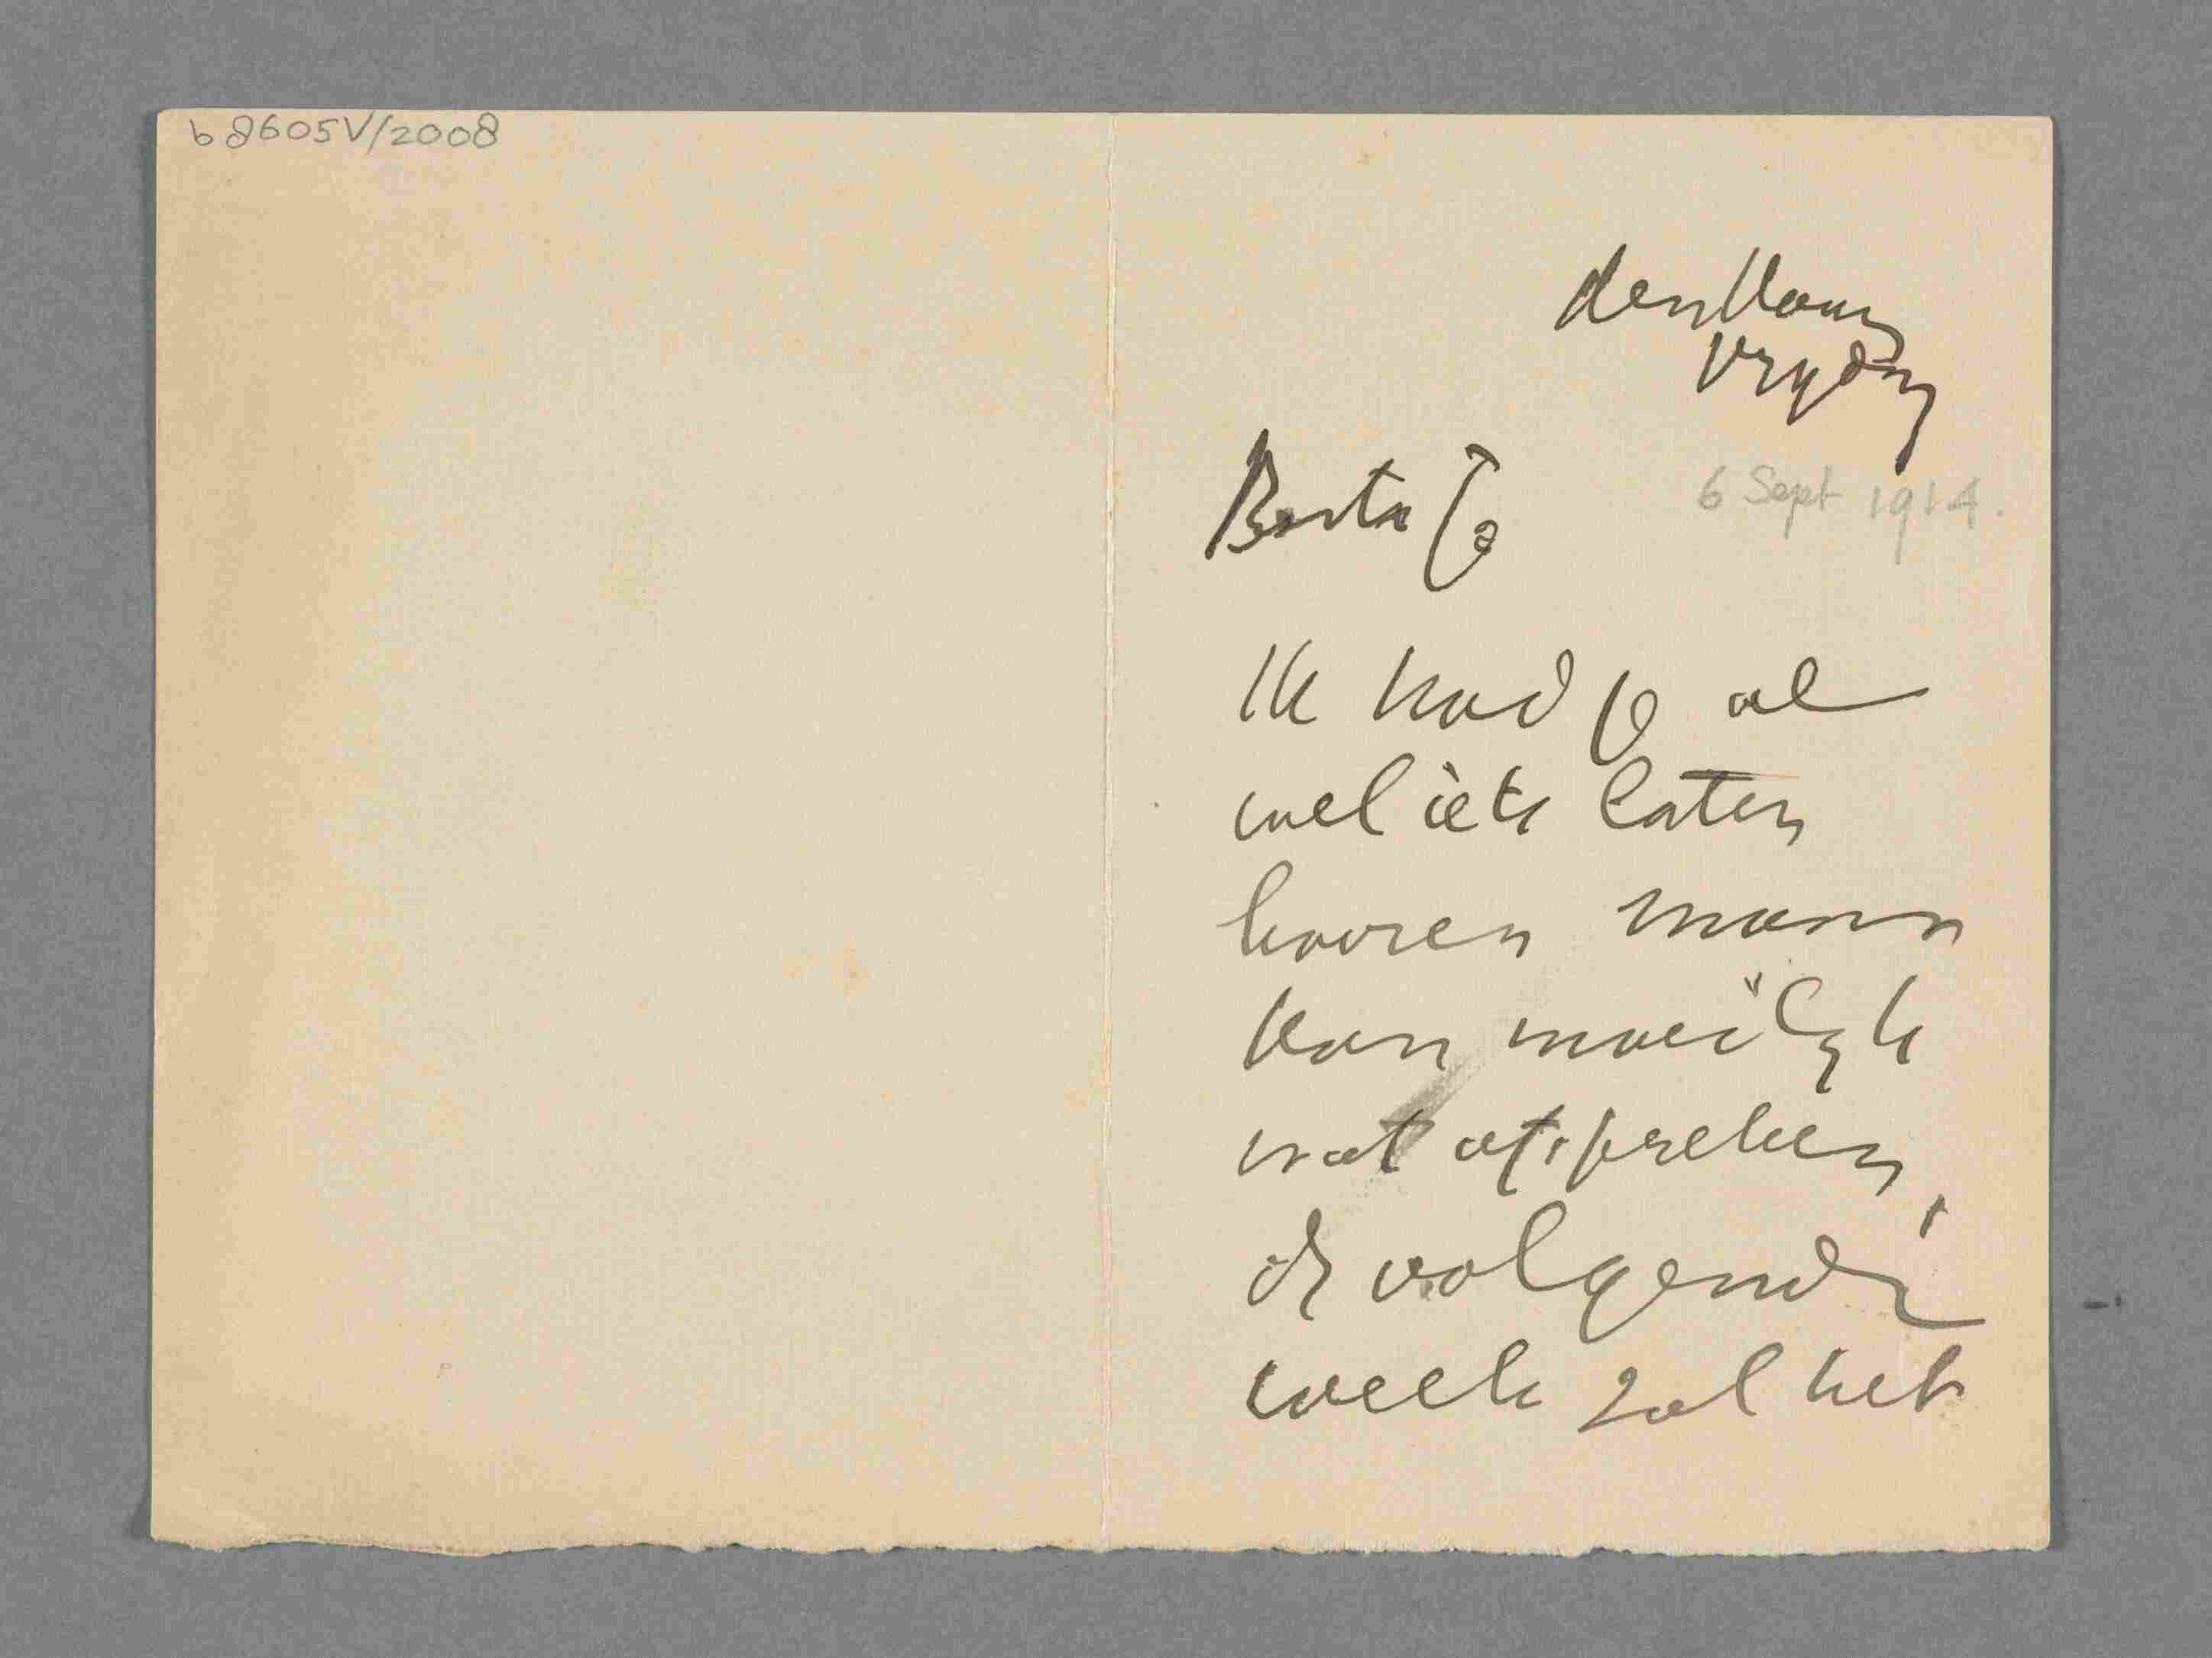 b 8605 V/2008
den Haag
Vrydag
6 Sept 1914.
Beste Jo
Ik had je al
wel iets laten
hooren maar
kan moeilyk
wat afspreken,
de volgende
week zal het